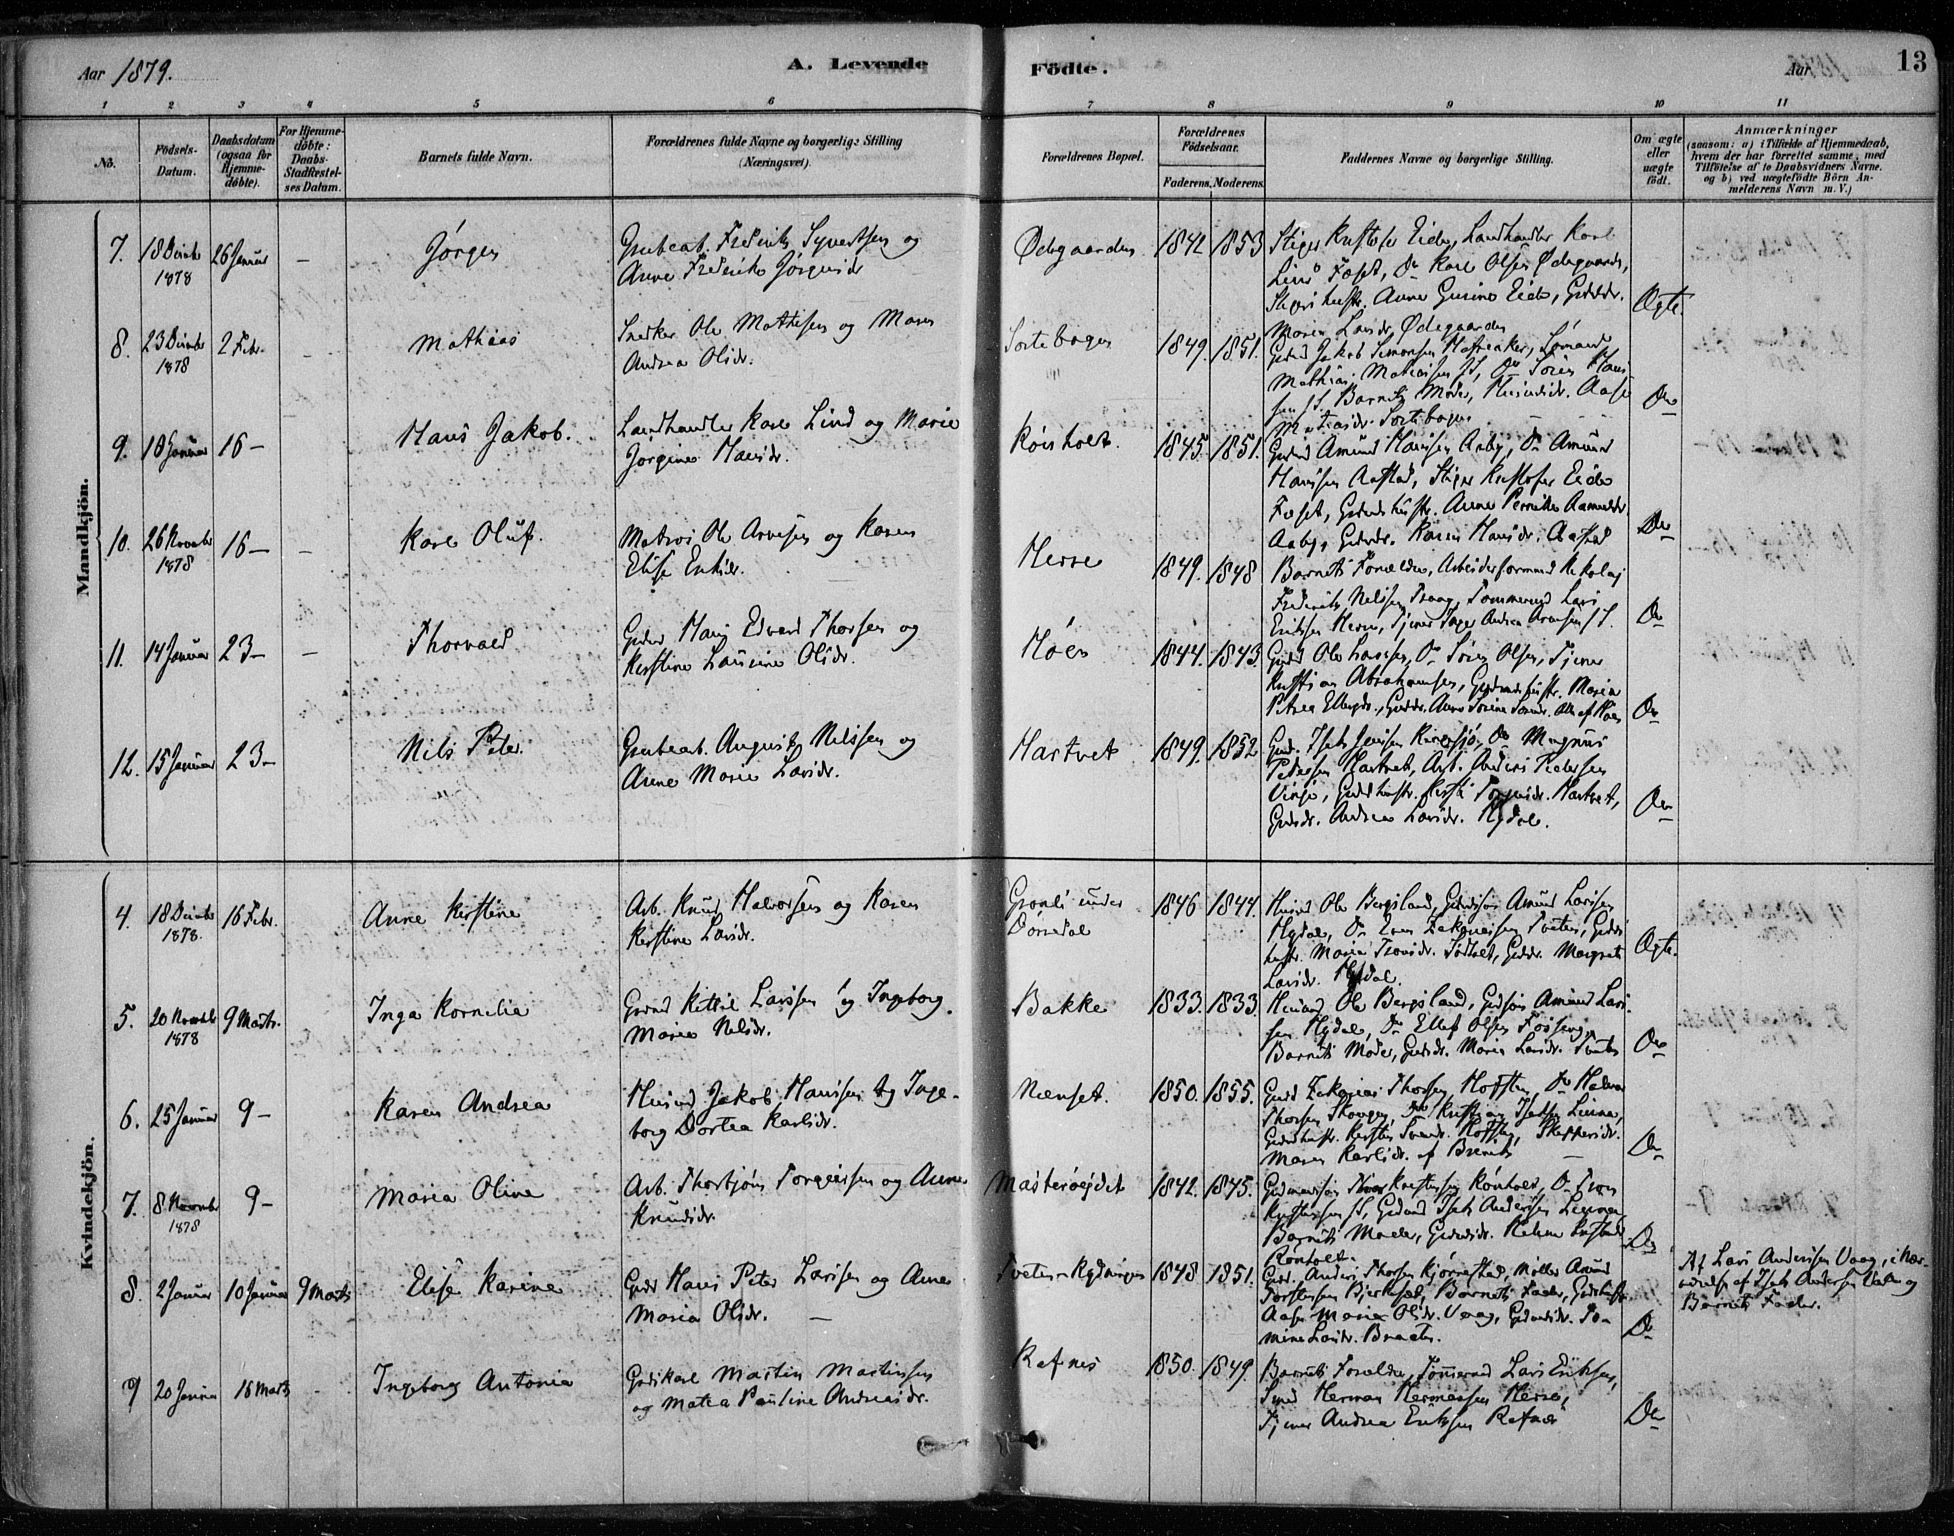 Aar 1879.
A. Levende
Födte.
Aar
13
1 2 3 4 5 6 7 8 9 10 11
No.
Födsels-
Datum.
Daabsdatum
(ogsaa for
Hjemme-
döbte).
For Hjemme-
döbte:
Daabs-
Stadfæstel-
ses Datum.
Barnets fulde Navn.
Forældrenes fulde Navne og borgerlige Stilling
(Næringsvei).
Forældrenes Bopæl.
Forældrenes
Födselsaar.
Faderens. Moderens.
Faddernes Navne og borgerlige Stilling.
Om ægte
eller
uægte
födt.
Anmærkninger
(saasom: a) i Tilfælde af Hjemmedaab,
hvem der har forrettet samme, med
Tilföielse af to Daabsvidners Navne.
og b) ved uægtefödte Börn An-
melderens Navn m. V.)
Mandkjön.
7. 18 Decbr 1878 26 Januar – Jørgen
Grubearb. Frederik Syvertsen og
Anne Frederike Jørgensdr
Ødegaarden 1842 1853
Stiger Kristofer Eide, Landhandler Karl
Lind Foset, Do Karl Olsen Ødegaarden,
Stigers hustr. Anne Gurine Eide, Grdsdr.
Maren Larsdr. Ødegaarden
Ægte.
8. 23 Decbr 1878 2 Febr. – Mathias
Snedker Ole Mathisen og Maren
Andrea Olsdr.
Sortebogen 1849. 1851.
Grdmd Jakob Simonsen Hafsaker, Sømand
Mathias Mathisen St, Do Søren Han-
sen St. Barnets Moder, Husmdsdr. Aase
Mathisdr. Sortebogen
Do
9. 18 Januar 16 – Hans Jakob.
Landhandler Karl Lind og Marie
Jørgine Hansdr.
Rønholt. 1845. 1851.
Grdmd Amund Hansen Aaby, Do Amund
Hansen Aafstad, Stiger Kristofer Eide
Foset, Grdmds hustr. Anne Pernille Aamundsdr
Aaby, Grdsdr. Karen Hansdr. Aafstad
Do
10. 26 Novbr 1878 16 – – Karl Oluf.
Matros Ole Arvesen og Karen
Elise Eriksdr.
Herre 1849. 1848
Barnets Forældre, Arbeidsformand Nikolaj
Frederik Nilssen Traag, Tømmermd Lars
Eriksen Herre, Tjener Inger Andrea Arvesen St.
Do
11. 14 Januar 23 – – Thorvald
Grdmd Hans Edvard Thorsen og
Kirstine Laurine Olsdr.
Høen 1844. 1843.
Grdmd Ole Larsen, Do Søren Olsen, Tjener
Kristian Abrahamsen, Grdmds hustr. Maria
Petrea Ellingsdr., Grdsdr. Anne Sørine Sørensdr. Alle af Høen
Do
12. 15 Januar 23 – Nils Peter
Grubearb. August Nilssen og
Anne Marie Larsdr.
Hartvet 1849. 1852
Grdmd. Isak Jensen Kinesjø, Do Magnus
Pedersen Hartvet, Arb. Anders Pedersen
Vinje, Grdmds hustr. Kirsti Torgersdr. Hartvet,
Grdsdr. Andrea Larsdr. Hydal.
Do
Kvindekjön.
4. 18 Decbr 1878. 16 Febr. Anne Kirstine
Arb. Knud Halvorsen og Karen
Kirstine Larsdr.
Grønli under
Dørdal 1846 1844.
Husmd Ole Bergsland, Grdmdsøn Amund Larsen
Hydal, Do Even Zakariassen Tveten, Grdmds
hustr. Maria Tronsdr. Tødtvet, Grdsdr. Margrete
Larsdr. Hydal.
Ægte.
5. 20 Novbr 1878 9 Marts. Inga Kornelia
Grdmd Kittil Larssen og Ingeborg
Maria Nilsdr.
Bakke 1833. 1833.
Husmd Ole Bergsland, Grdsøn Amund Lars-
sen Hydal, Do Ellef Olsen Fosseng,
Barnets Moder, Grdsdr. Maria Larsdr. Tveten
Do
6. 25 Januar 9 – Karen Andrea
Husmd Jakob Hanssen og Inge-
borg Dortea Karlsdr.
Nænset. 1850. 1855.
Grdmd Zakarias Thorsen Hofsten, Do Halvor
Thorsen Skougen, Do Kristian Isaksen Linna,
Grdmds hustr. Kirsten Svendsdr. Hofsten, Skippersdr.
Maren Karlsdr. af Brevik
Do
7. 8 Novembr 1878 9 – Maria Oline
Arb. Thorbjørn Torgersen og Anne
Knudsdr.
Masterøgdet 1842. 1845.
Grdmandsøn Thor Kristensen Rønholt, Do Tron
Kristensen St, Grdmd Isak Andersen Linna,
Barnets Moder, Grdsdr. Helene
Rønholt.
Do
8. 2 Januar 10 Januar 9 Marts Elise Karine
Grdmd Hans Peter Larsen og Anne
Maria Olsdr. –
Tveten-Rydningen 1848. 1851.
Grdmd. Anders Thorsen Kjørrestad, Møller Amund
Torstensen Bjerkset, Barnets Fader, Grdmdshustr
Aase Maria Olsdr. Vaag, Grdmdsdr. To-
mine Larsdr. Braaten.
Do
Af Lars Andersen Vaag, i Nær-
værelse af Isak Andersen Valen og
Barnets Fader.
9 20 Januar 16 Marts – Ingeborg Antonia
Grdkarl Martin Martinsen
og Matea Pauline Andreasdr.
Rafnes 1850. 1849.
Barnets Forældre, Tømmermd Lars Eriksen,
Smed Herman Hermansen Herre,
Tjener Andrea Eriksen Rafnæs
Do